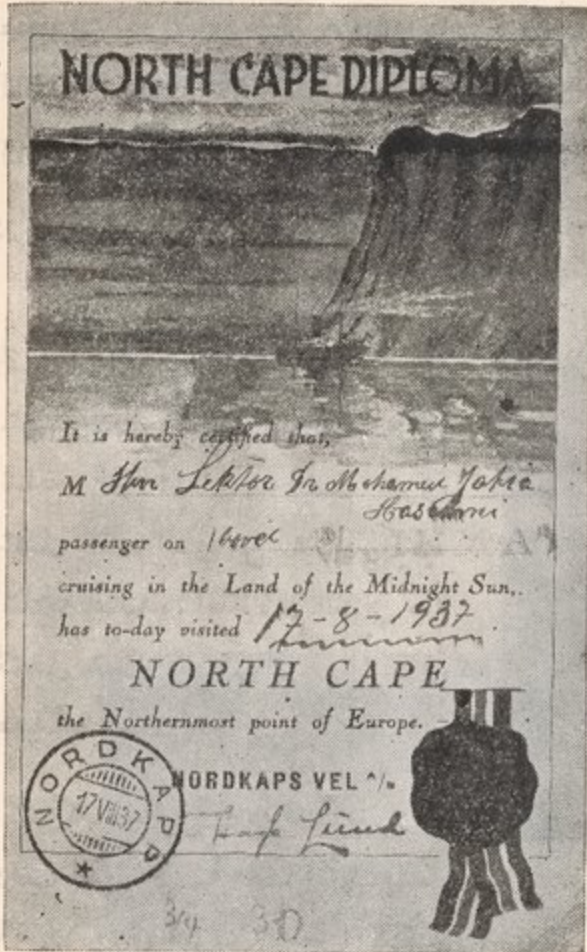 NORTH CAPE DIPLOMA
It is hereby certified that,
M Herr Lektor Dr Mohamed Yahia
Haschmi
passenger on
cruising in the Land of the Midnight Sun,
has to-day visited 17-8-1937
NORTH CAPE
the Northernmost point of Europe.
NORDKAPS VEL A/s
Lund
NORDKAPP
17 VIII 37
3/4 30